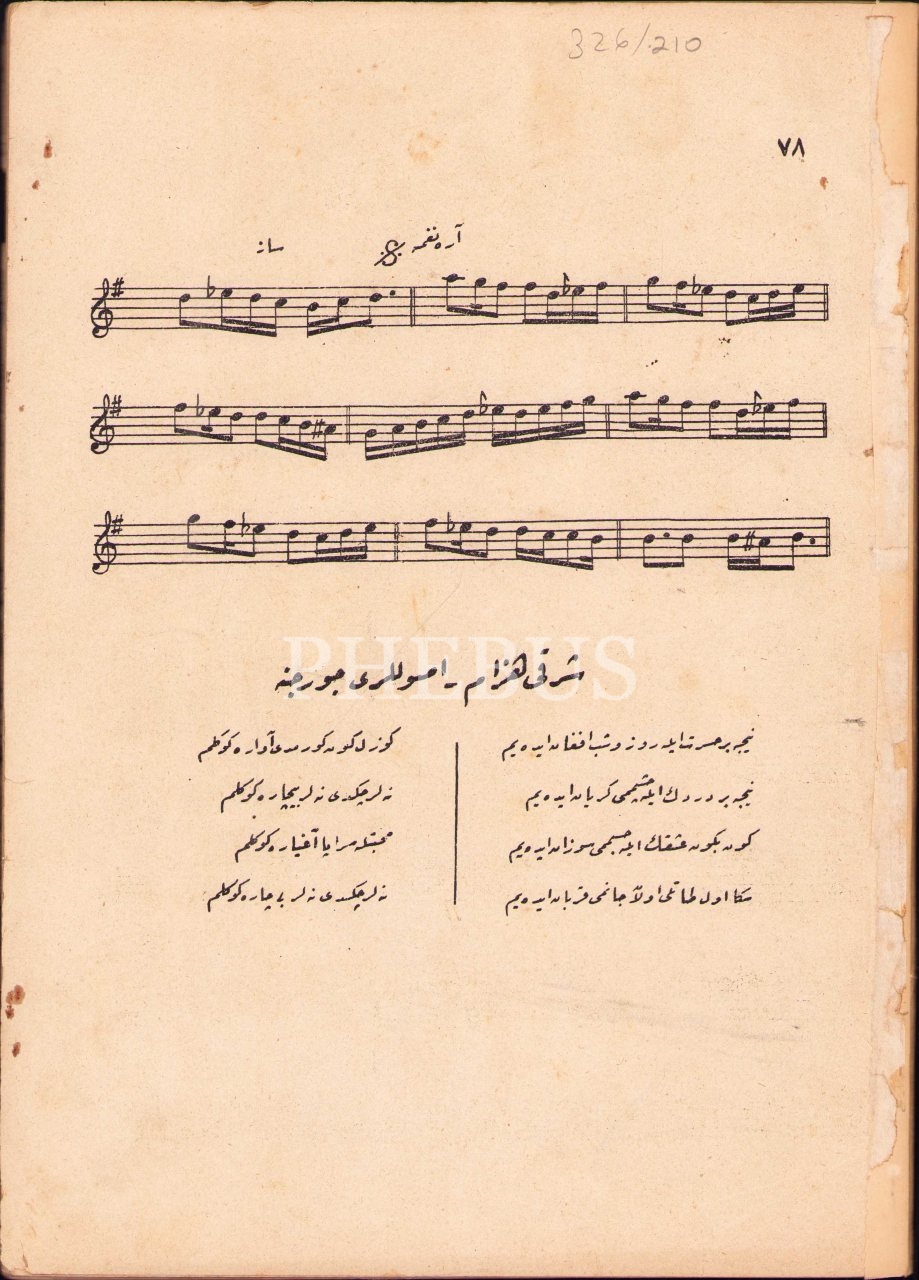 326/210
٧٨
آره نغمه
ساز
PHEBUS
شرقی هزام اصوللری جورجنه
نیجه بر حسرت ایله روز و شب افغان ایده یم
نیجه بر دردك ایله چشمی کریان ایده یم
کون بکون عشقك ایله جسمی سوزان ایده یم
سکا اول طاتلی اولا جانمی قربان ایده یم
کوزل کون کورمدی آواره کوکلم
نه لر چکدی نه لر بیچاره کوکلم
مبتلا اغیاره کوکلم
نه لر چکدی نه لر بی چاره کوکلم